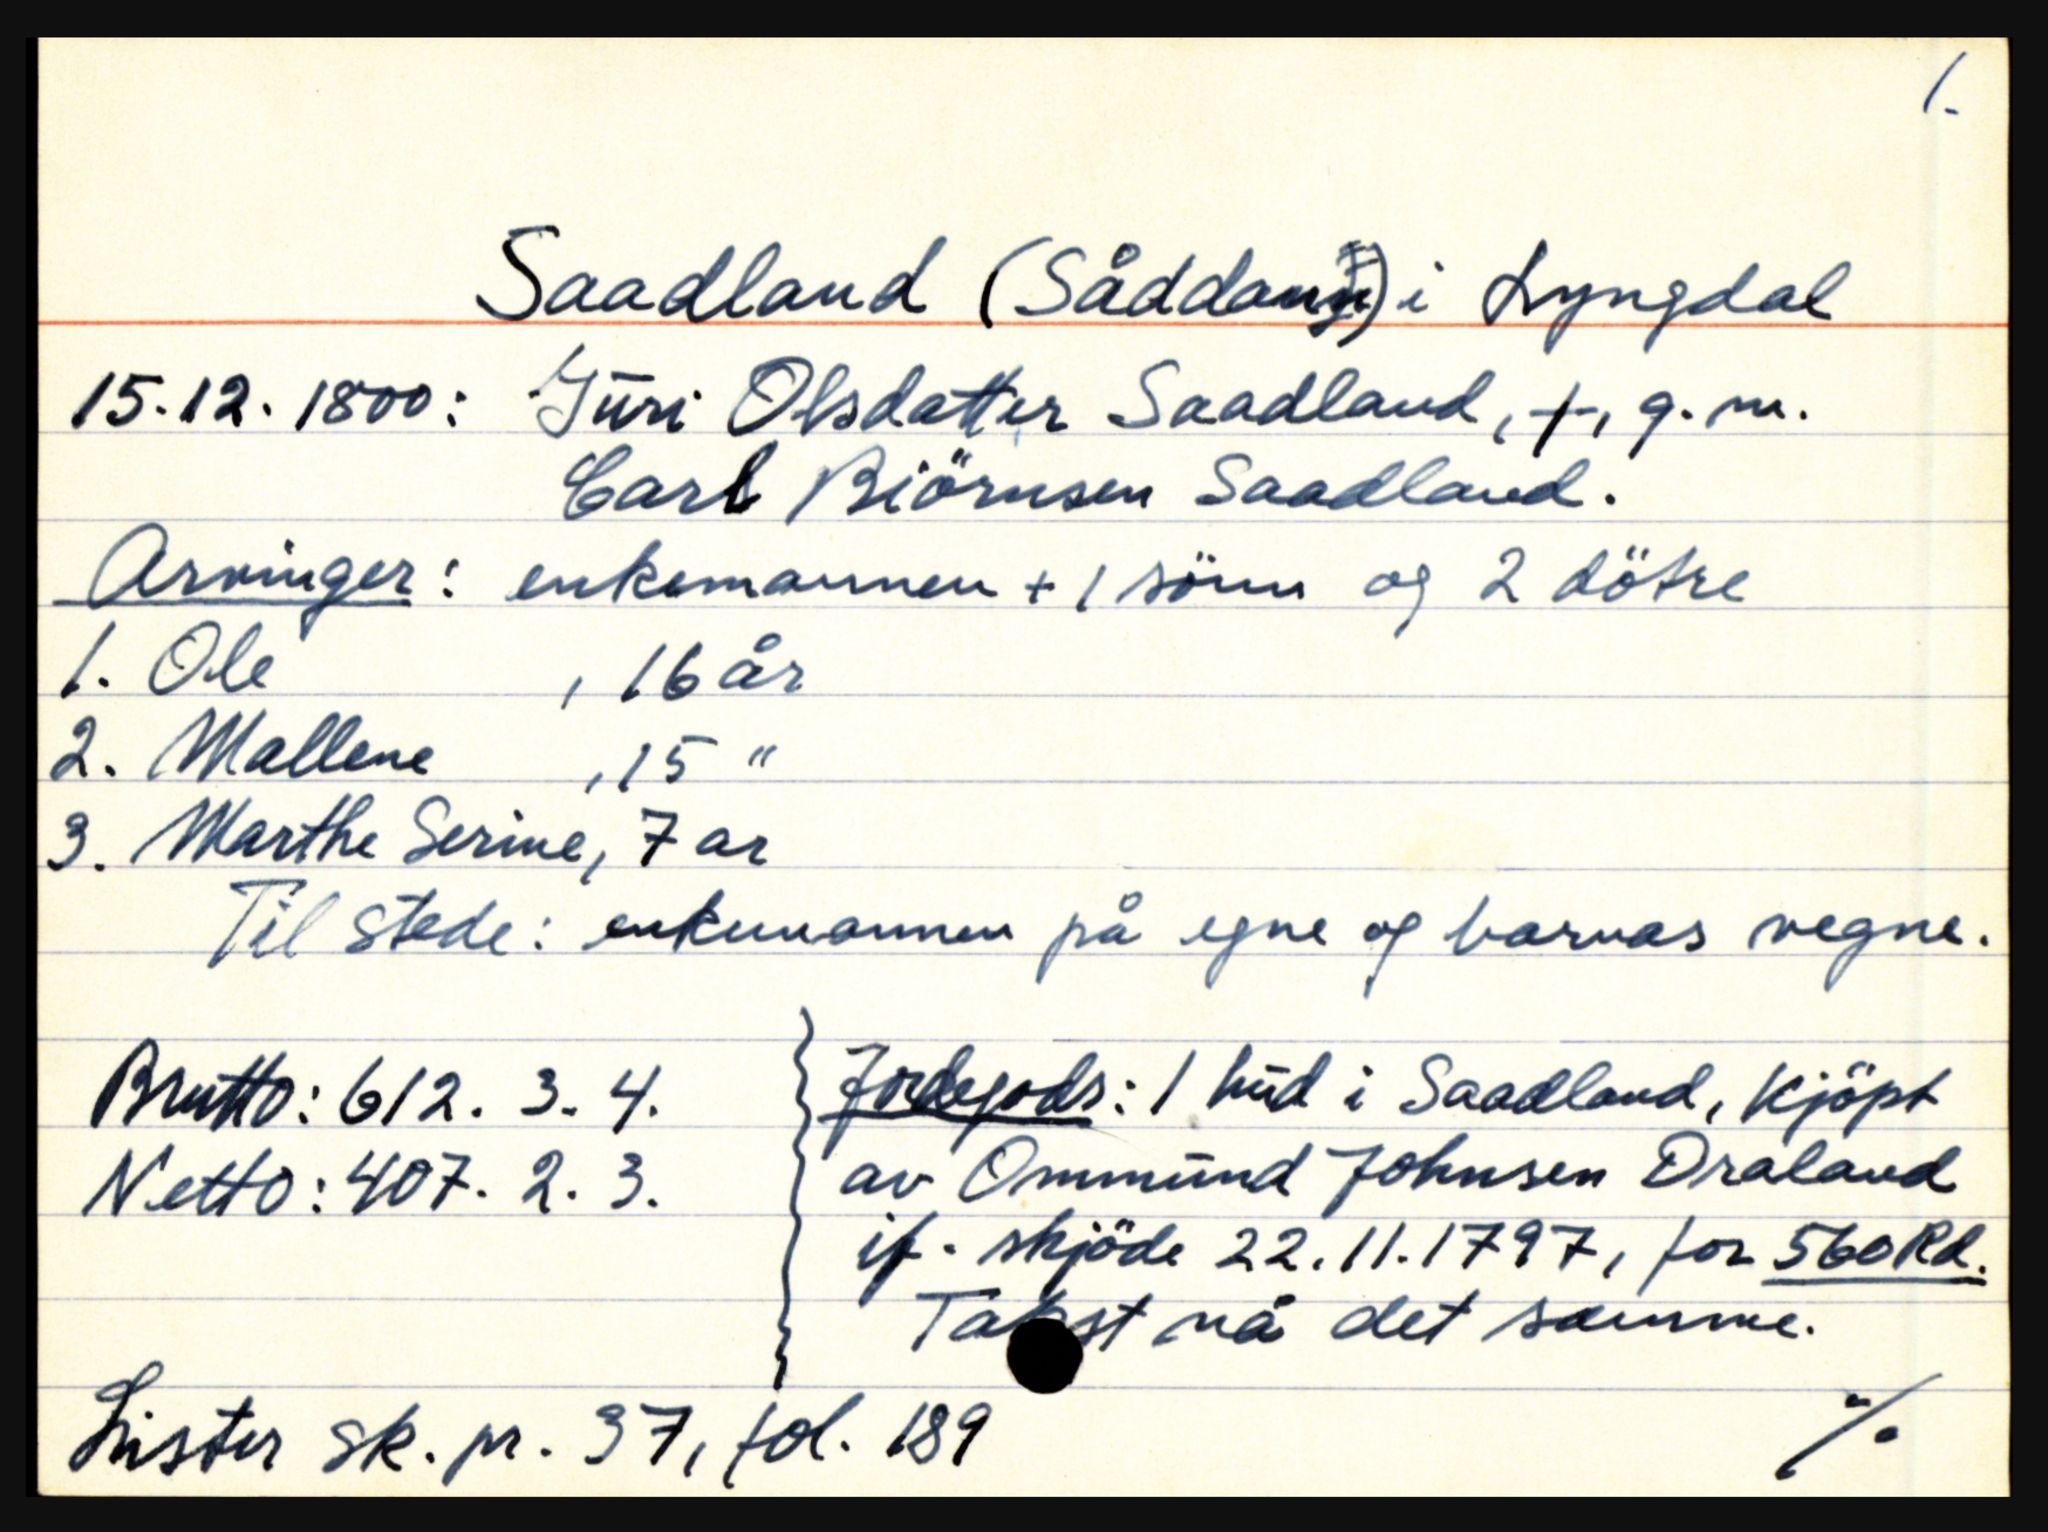 1.
Saadland (Såddan) i Lyngdal
15.12.1800: Guri Olsdatter Saadland, +, g.m.
Carl Biörnsen Saadland.
Arvinger: enkemannen + 1 sönn og 2 dötre
1. Ole , 16 år
2. Mallene , 15 "
3. Marthe Serine, 7 ar
Til stede: enkemannen på egne og barnas vegne.
Brutto: 612. 3. 4.
Netto: 407. 2. 3.
Jordegods: 1 hud i Saadland, kjöpt
av Ommund Johnsen Draland
if. skjöde 22.11.1797, for 560 Rd.
Takst nå det samme.
Lister sk. pr. 37, fol. 189
./.